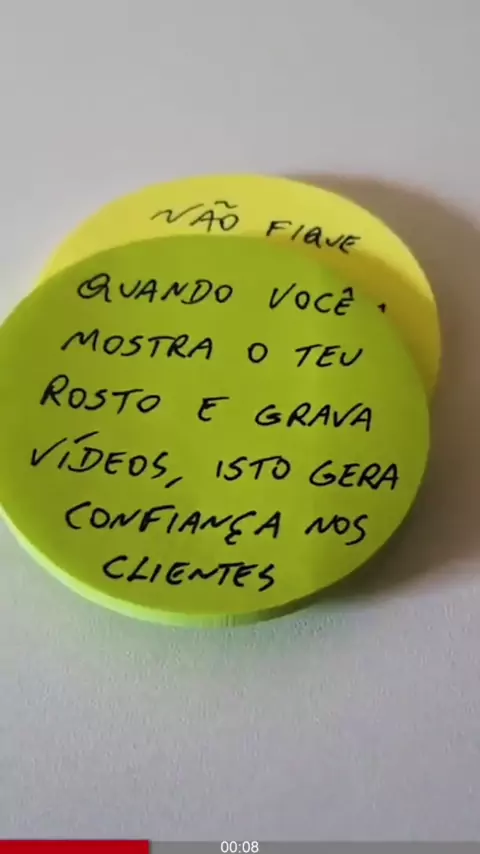 NÃO FIQUE
QUANDO VOCÊ
MOSTRA O TEU
ROSTO E GRAVA
VÍDEOS, ISTO GERA
CONFIANÇA NOS
CLIENTES
00:08